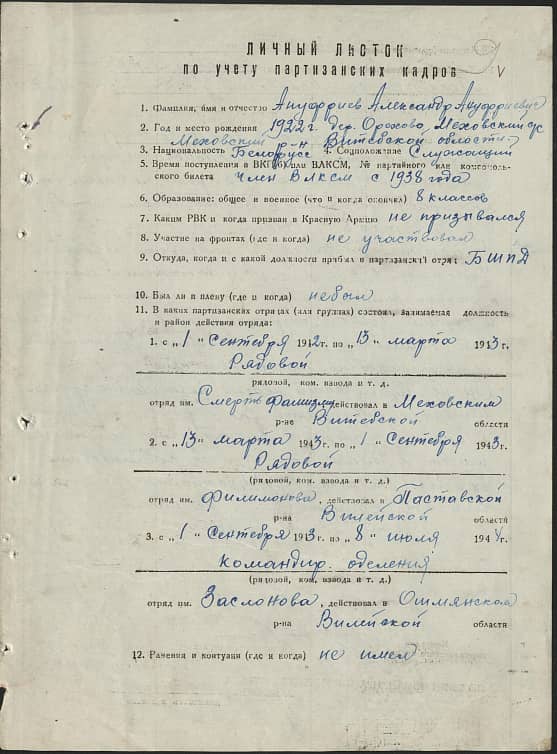 ЛИЧНЫЙ ЛИСТОК
по учету партизанских кадров
1. Фамилия, имя и отчество Ануфриев Александр Ануфриевич
2. Год и место рождения 1922 г. дер. Орехово, Меховский с/с
Меховский р-н Витебской области
3. Национальность Белорусс 4. Соцположение Служащий
5. Время поступления в ВКП(б) или ВЛКСМ, № партийного или комсомоль-
ского билета член ВЛКСМ с 1938 года
6. Образование: общее и военное (что и когда окончил) 8 классов
7. Каким РВК и когда призван в Красную Армию не призывался
8. Участие на фронтах (где и когда) не участвовал
9. Откуда, когда и с какой должности прибыл в партизанский отряд БШПД
10. Был ли в плену (где и когда) небыл
11. В каких партизанских отрядах (или группах) состоял, занимаемая должность
и район действия отряда:
1. с „1“ Сентября 1942г. по „13“ марта 1943г.
Рядовой
рядовой, ком. взвода и т. д.
отряд им. Смерть фашизму действовал в Меховским
р-не Витебской области
2. с „13“ марта 1943г. по „1“ Сентября 1943г.
Рядовой
(рядовой, ком. взвода и т. д.)
отряд им. Филимонова, действовал в Паставской
р-на Вилейской области
3. с „1“ Сентября 1943г. по „8“ июля 1944г.
командир. оделения
(рядовой, ком. взвода и т. д.)
отряд им. Заслонова, действовал в Ошмянском
р-на Вилейской области
12. Ранения и контузии (где и когда) не имел